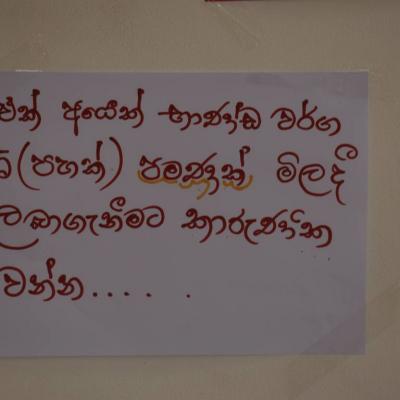 එක් අයෙක් භාණ්ඩ වර්ග
(පහක්) පමණක් මිලදී
ලබාගැනීමට කාරුණික
වන්න.... .